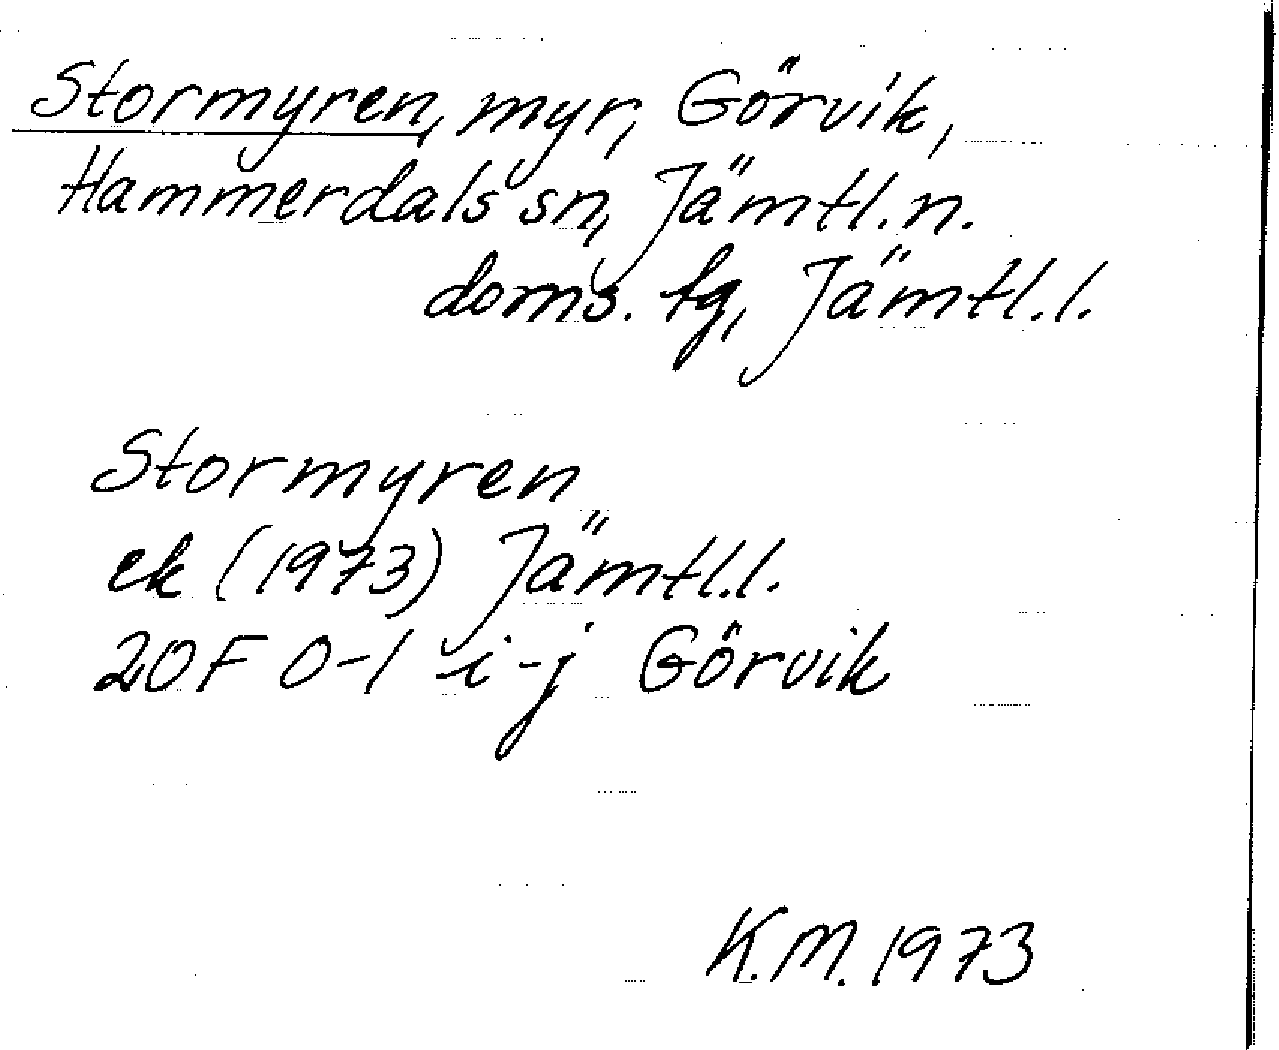 Stormyren, myr, Görvik,
Hammerdals sn, Jämtl.n.
doms. tg, Jämtl.l.
Stormyren
ek (1973) Jämtl.l.
20F 0-1 i-j Görvik
K.M. 1973